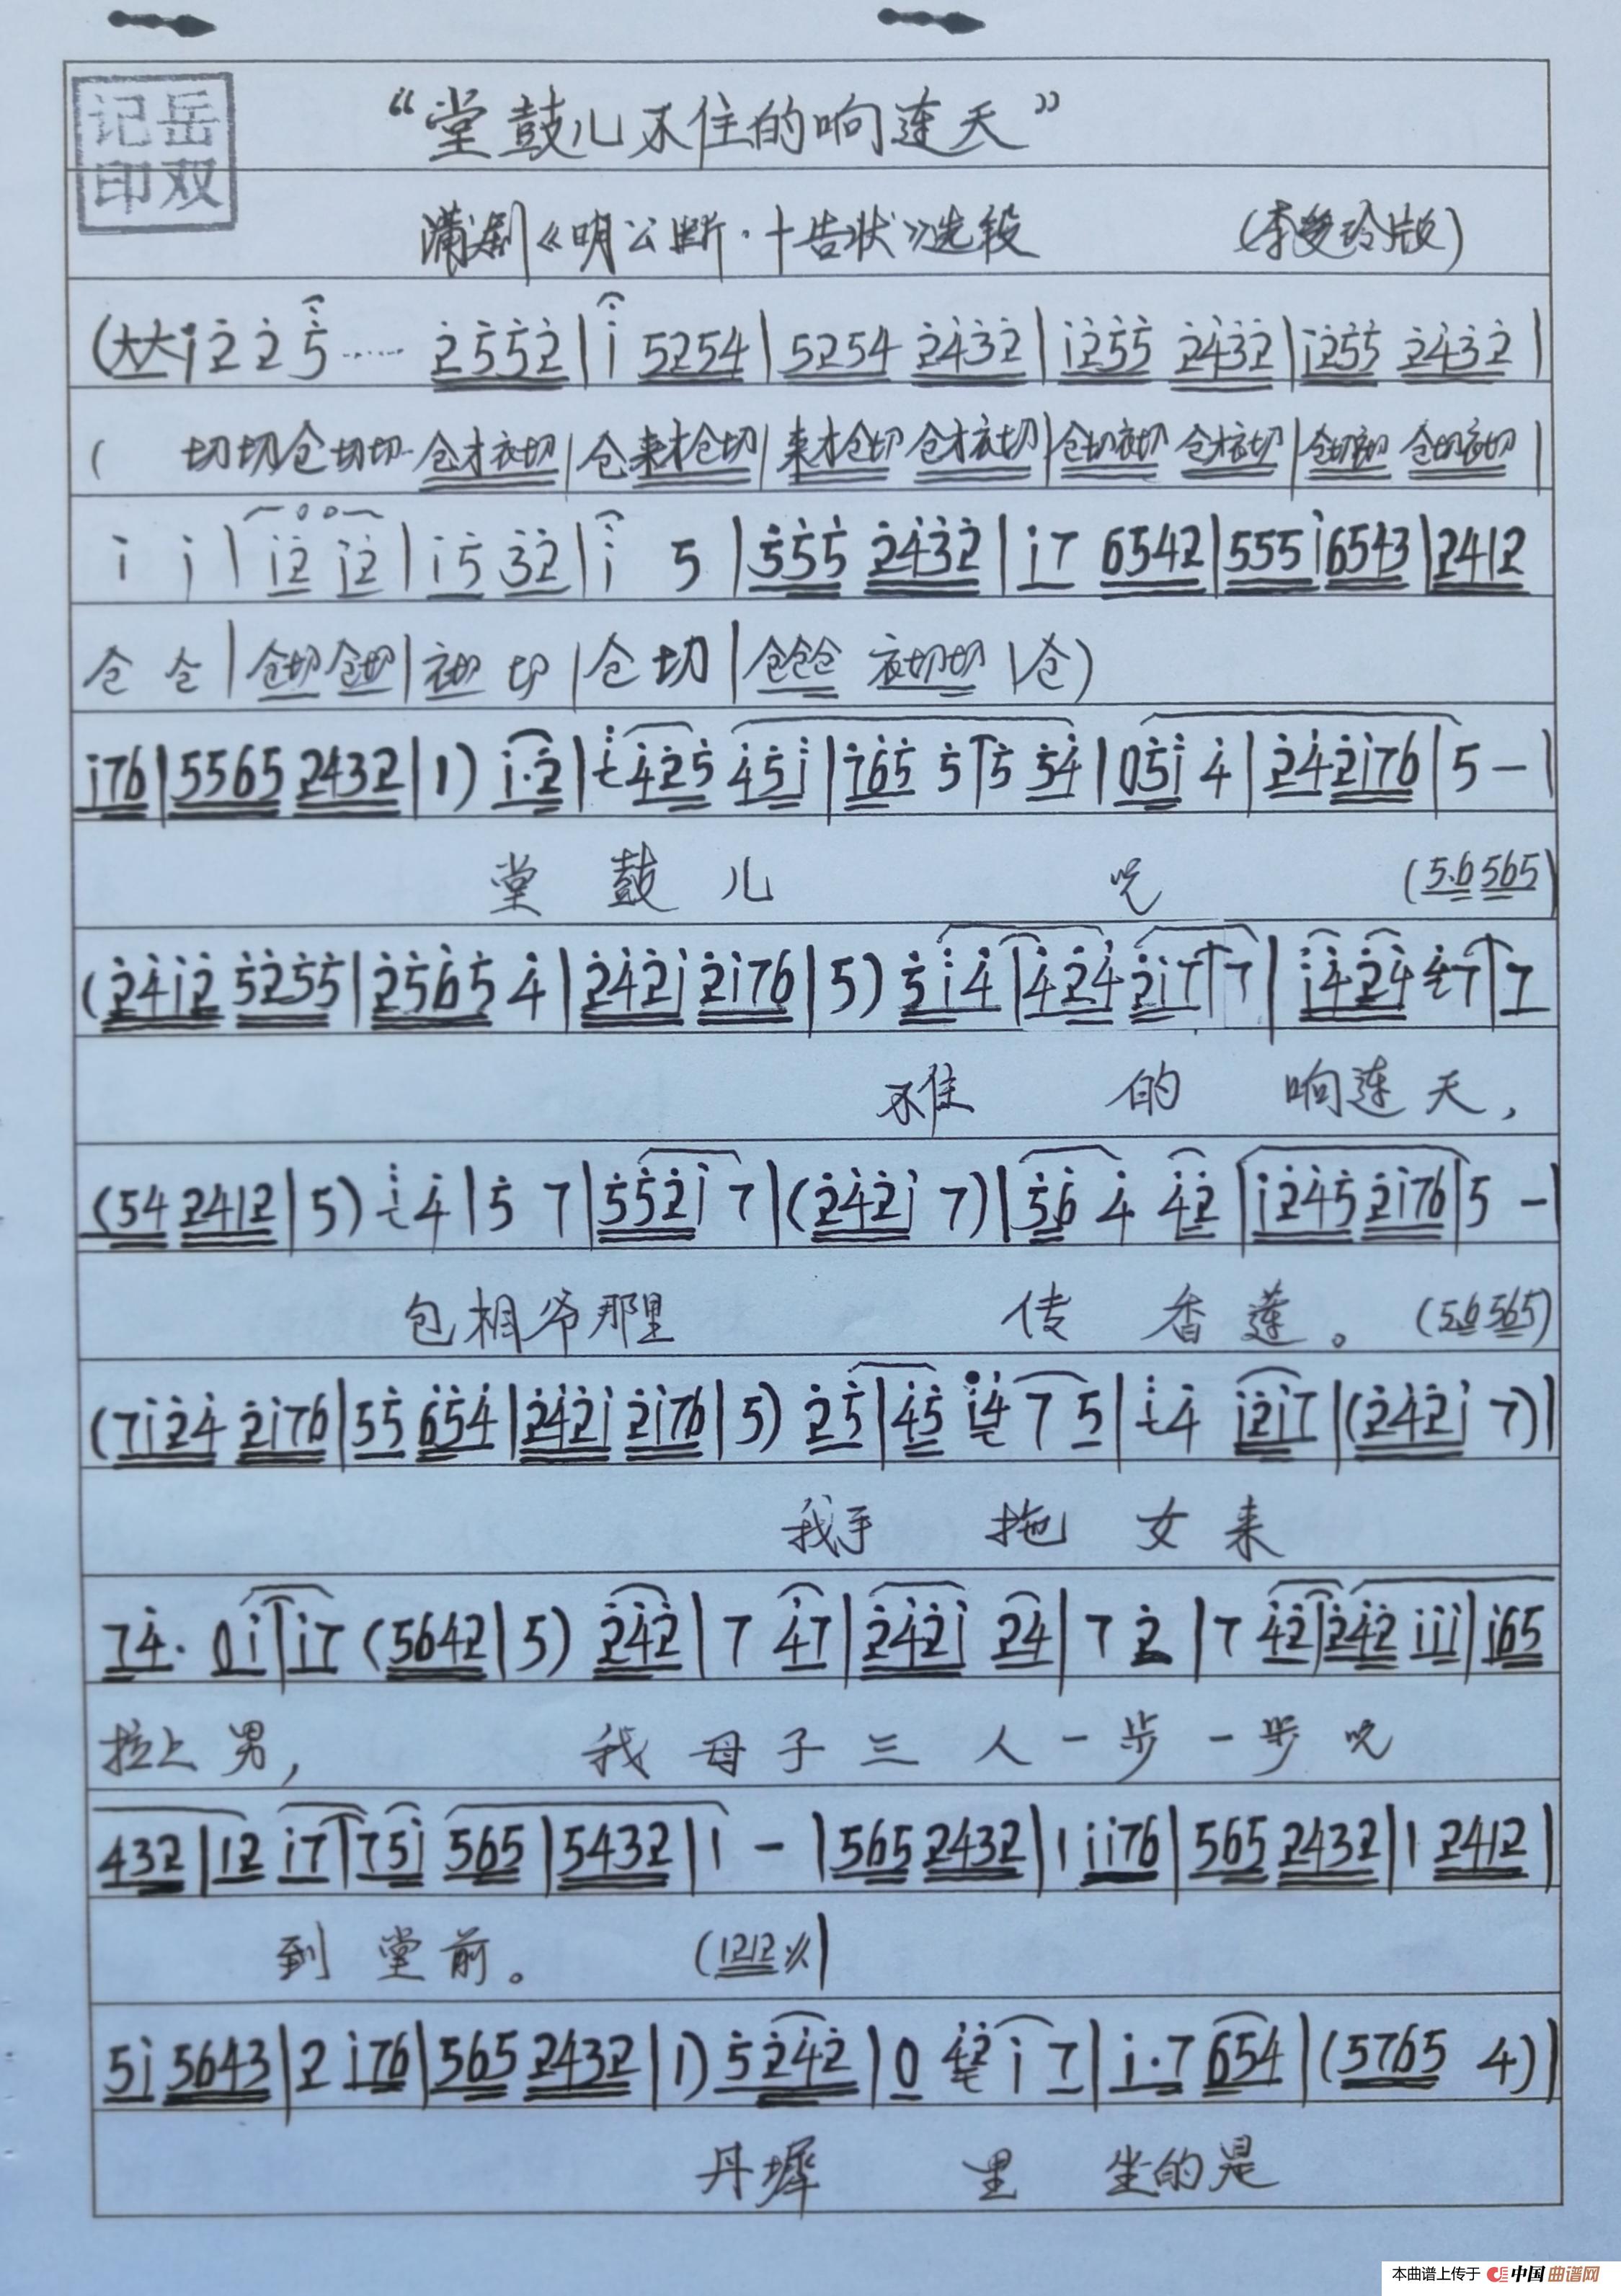 记岳
印双
“堂鼓儿不住的响连天”
蒲剧《明公断·十告状》选段 (李爱玲版)
(大大i22 5…… 2552|i 5254|5254 2432|i255 2432|i255 2432|
( 切切仓切切·仓才衣切|仓来才仓切|来才仓切 仓才衣切|仓切衣切 仓才衣切|仓切衣切 仓切衣切|
i i|i2 i2|i5 32|i 5|555 2432|i7 6542|555i6543|2412
仓 仓|仓切仓切|衣切 切|仓 切|仓仓仓 衣切切|仓)
i76|5565 2432|1) i·2|425 45i|765 5|5 54|05i 4|242i76|5 -|
堂 鼓 儿 吃 (5.6 565)
(24i2 5255|2565 4|242i 2i76|5) 5i4|424 2i7|7|i424 47|7
不住 的 响连天,
(54 2412|5) 4|5 7|552i 7|(242i 7)|56 4 42|i245 2i76|5 -|
包相爷那里 传 香莲。 (5.6 565)
(7i24 2i76|55 654|242i 2i76|5) 25|45 i4 7 5|4 i2i7|(242i 7)|
我手 拖 女来
74· 0i|i7 (5642|5) 242|7 47|242i 24|7 2|7 42|242 iii|i65
拉上男, 我母子三人一步一步吃
432|12 i7|75i 565|5432|1 -|565 2432|1 ii76|565 2432|1 2412|
到堂前。 (1212 ∥)
5i 5643|2 i76|565 2432|1) 5242|0 42 i 7|i·7 654|(5765 4)|
丹墀 里 坐的是
本曲谱上传于 中国曲谱网